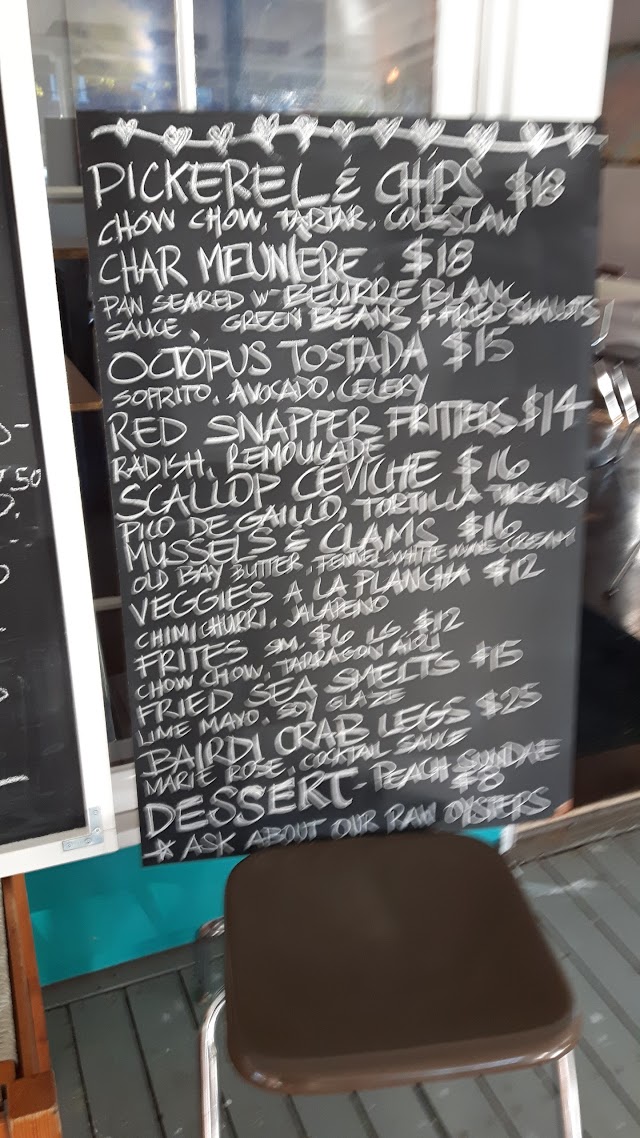 PICKEREL & CHIPS $18
CHOW CHOW, TARTAR, COLESLAW
CHAR MEUNIERE $18
PAN SEARED W- BEURRE BLANC
SAUCE, GREEN BEANS + FRIED SHALLOTS
OCTOPUS TOSTADA $15
SOFRITO, AVOCADO, CELERY
RED SNAPPER FRITTERS $14
RADISH, REMOULADE
SCALLOP CEVICHE $16
PICO DE GAILLO, TORTILLA THREADS
MUSSELS & CLAMS $16
OLD BAY BUTTER, FENNEL WHITE WINE CREAM
VEGGIES A LA PLANCHA $12
CHIMICHURRI, JALAPENO
FRITES SM. $6 LG. $12
CHOW CHOW, TARRAGON AIOLI
FRIED SEA SMELTS $15
LIME MAYO, SOY GLAZE
BAIRDI CRAB LEGS $25
MARIE ROSE, COCKTAIL SAUCE
DESSERT - PEACH SUNDAE
$8
* ASK ABOUT OUR RAW OYSTERS
.50